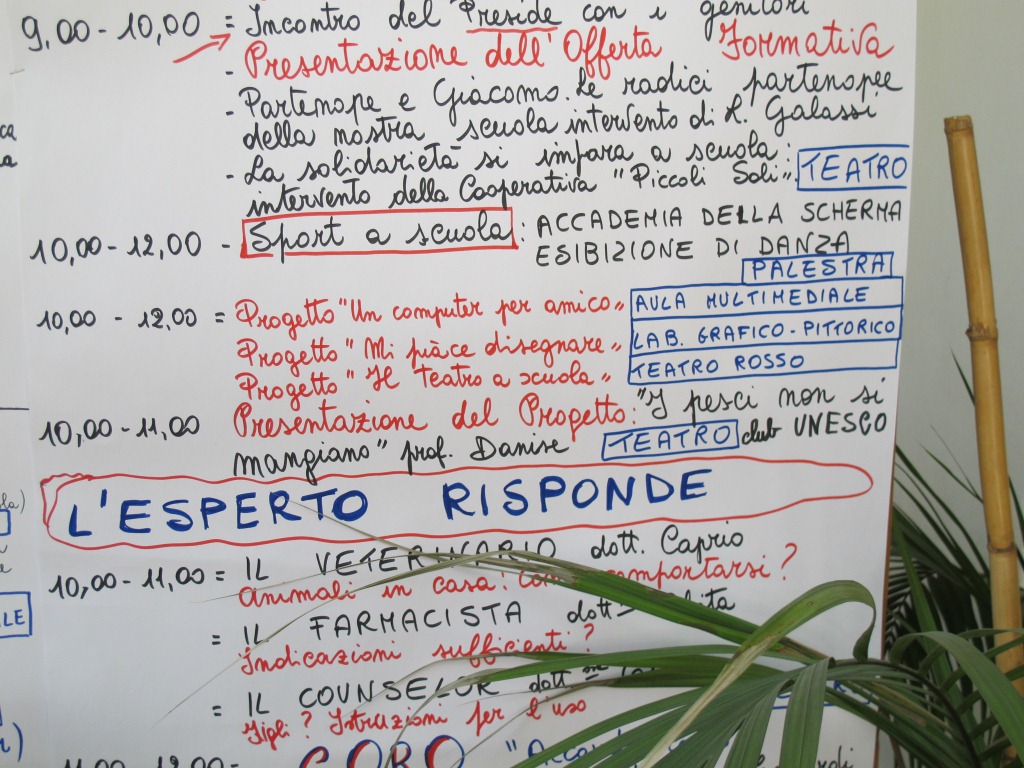 9,00-10,00 = Incontro del Preside con i genitori
Presentazione dell'Offerta Formativa
- Partenope e Giacomo. Le radici partenopee
della nostra scuola intervento di R. Galassi
- La solidarietà si impara a scuola:
intervento della Cooperativa "Piccoli Soli". TEATRO
10,00-12,00 - Sport a scuola: ACCADEMIA DELLA SCHERMA
ESIBIZIONE DI DANZA
PALESTRA
10,00 - 12,00 = Progetto "Un computer per amico" AULA MULTIMEDIALE
Progetto "Mi piàce disegnare" LAB. GRAFICO-PITTORICO
Progetto "Il Teatro a scuola" TEATRO ROSSO
10,00-11,00 Presentazione del Progetto: "I pesci non si
mangiano" prof. Danise TEATRO club UNESCO
L'ESPERTO RISPONDE
10,00-11,00 = IL VETERINARIO dott. Caprio
Animali in casa! comportarsi?
= IL FARMACISTA dott
Indicazioni sufficienti?
= IL COUNSELOR dott.
Figli? Istruzioni per l'uso
11,00 12,00 = CORO